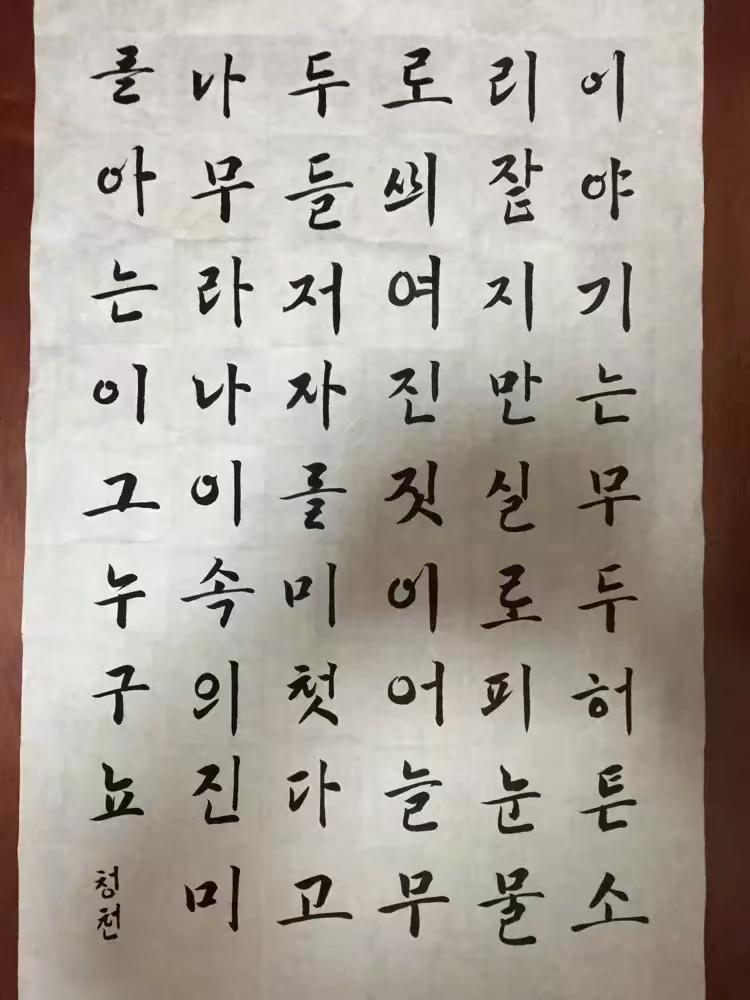 이야기는무두허튼소
리잡지만실로피눈물
로씌여진짓이어늘무
두들저자를미첫다고
나무라나이속의진미
를아는이그누구뇨
청천